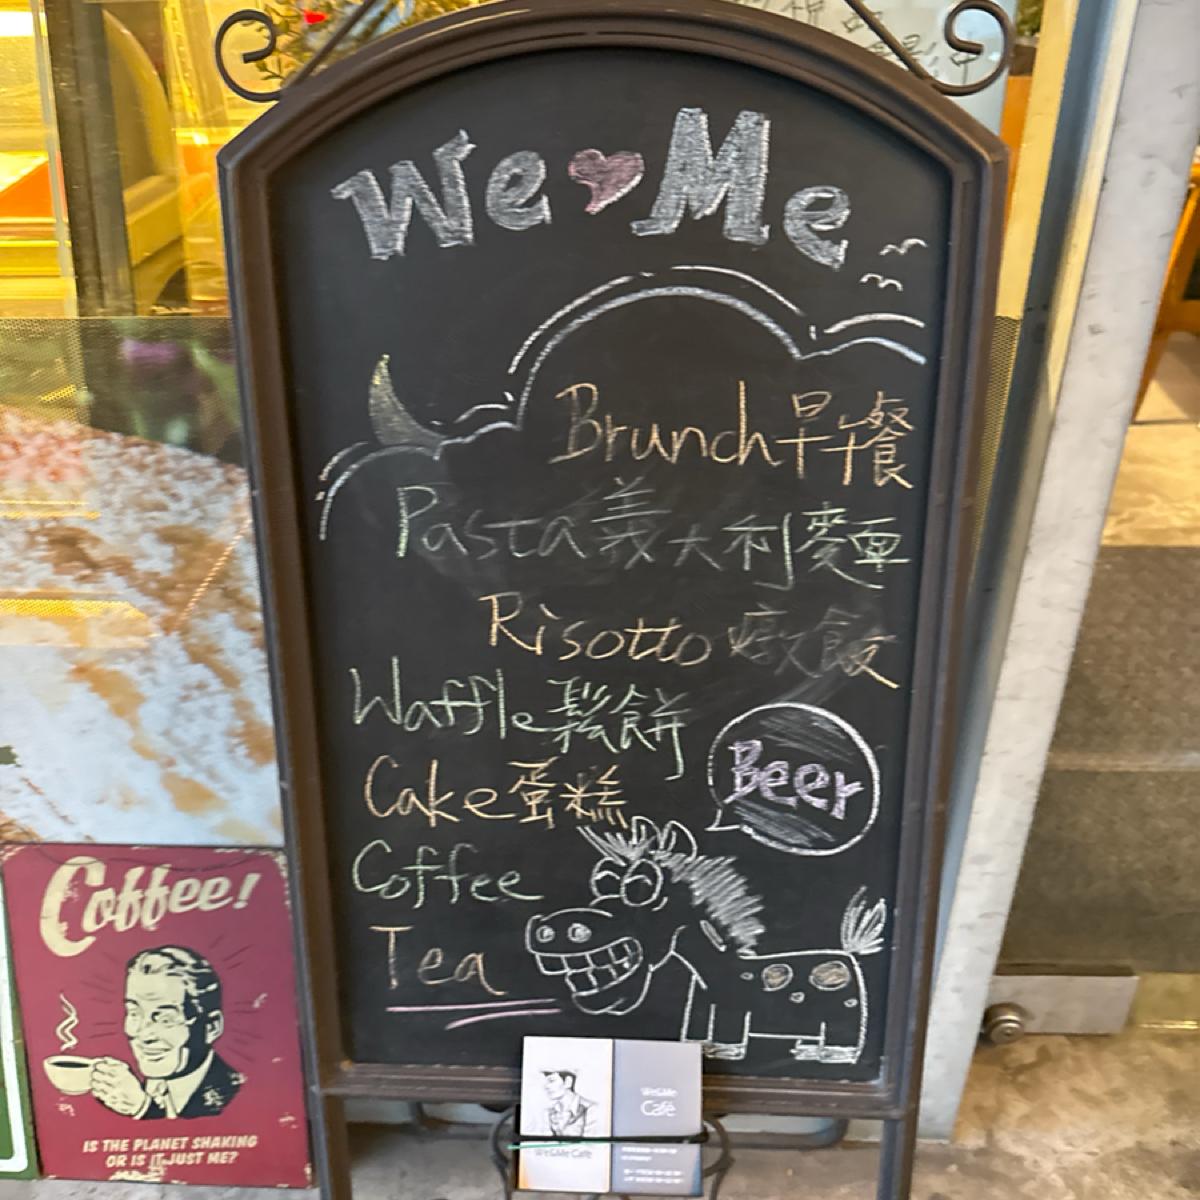 We Me
Brunch早午餐
Pasta義大利麵
Risotto燉飯
Waffle鬆餅
Cake蛋糕
Beer
Coffee
Tea
Coffee!
IS THE PLANET SHAKING
OR IS IT JUST ME?
We&Me
Café
We&Me Café